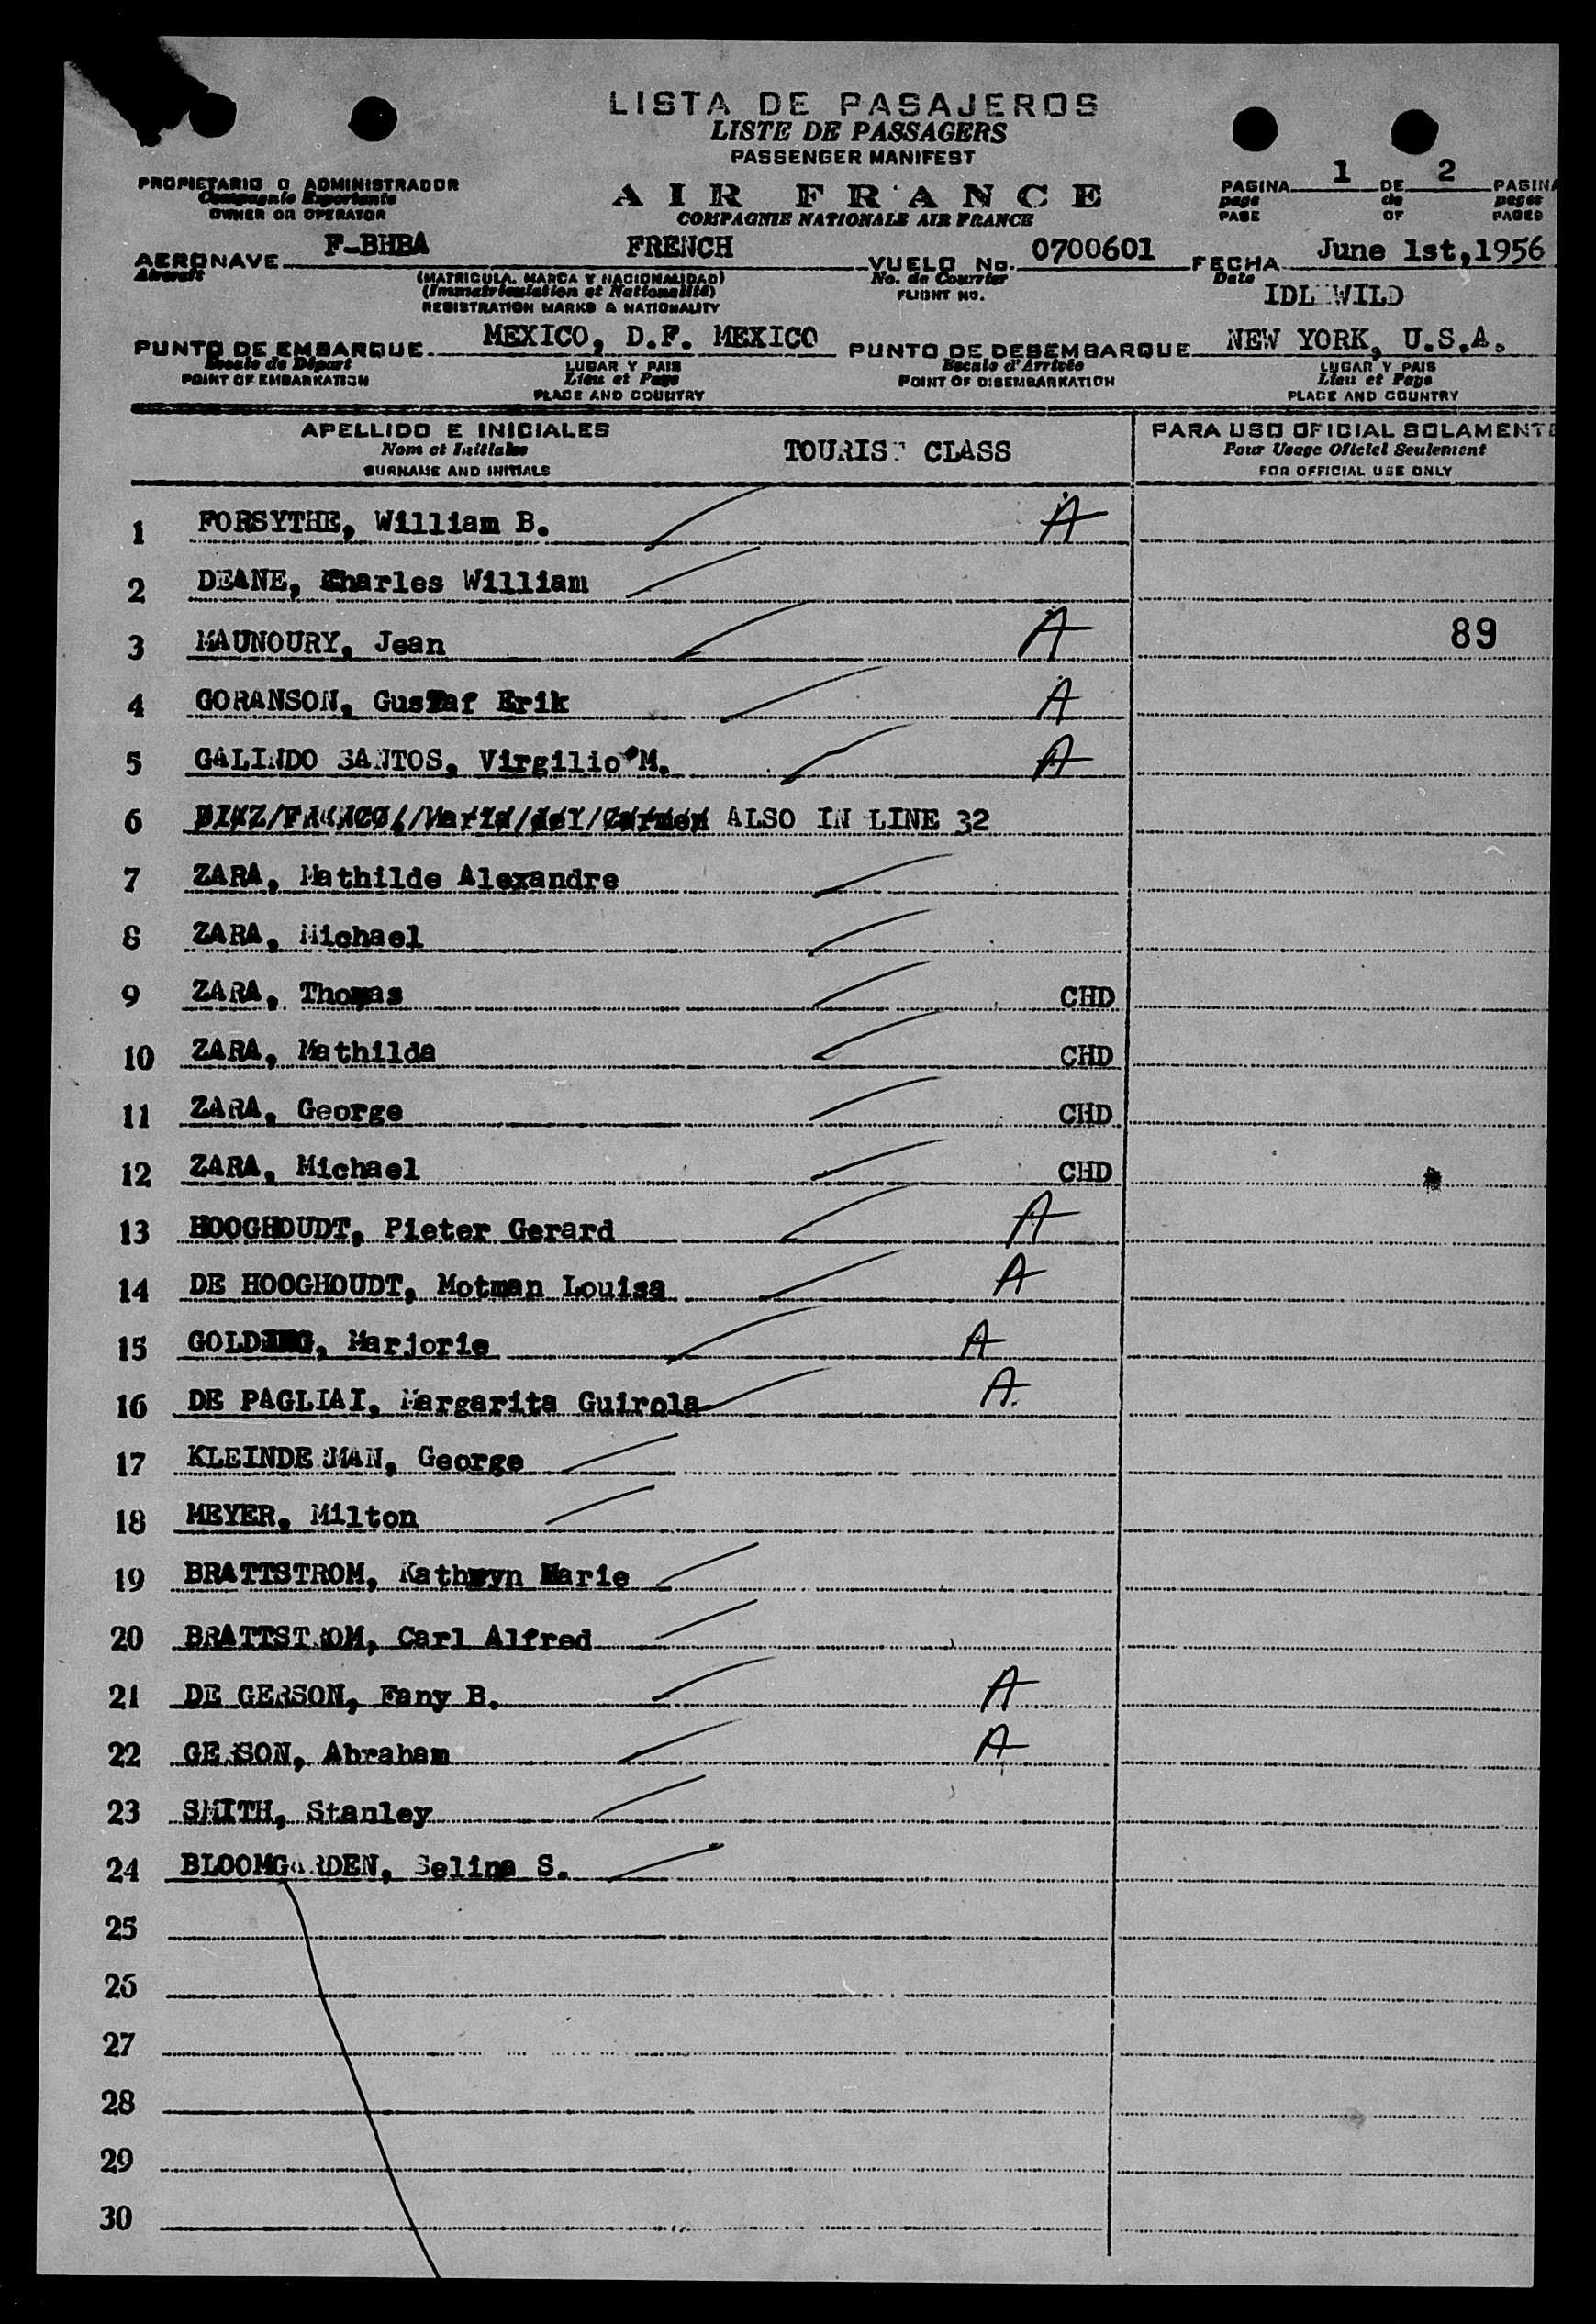 LISTA DE PASAJEROS
LISTE DE PASSAGERS
PASSENGER MANIFEST
PROPIETARIO O ADMINISTRADOR
Compagnie Exportante
OWNER OR OPERATOR
AIR FRANCE
COMPAGNIE NATIONALE AIR FRANCE
PAGINA 1 DE 2 PAGINA
page de pages
PAGE OF PAGES
AERONAVE F-BHBA FRENCH VUELO No. 0700601 FECHA June 1st, 1956
Aircraft (MATRICULA, MARCA Y NACIONALIDAD) No. de Courrier Date
(Immatriculation et Nationalité) FLIGHT NO. IDLEWILD
REGISTRATION MARKS & NATIONALITY
PUNTO DE EMBARQUE MEXICO, D.F. MEXICO PUNTO DE DESEMBARQUE NEW YORK, U.S.A.
Escale de Départ LUGAR Y PAIS Escale d'Arrivée LUGAR Y PAIS
POINT OF EMBARKATION Lieu et Pays POINT OF DISEMBARKATION Lieu et Pays
PLACE AND COUNTRY PLACE AND COUNTRY
APELLIDO E INICIALES TOURIST CLASS PARA USO OFICIAL SOLAMENTE
Nom et Initiales Pour Usage Oficiel Seulement
SURNAME AND INITIALS FOR OFFICIAL USE ONLY
1 FORSYTHE, William B. A
2 DEANE, Charles William
3 MAUNOURY, Jean A 89
4 GORANSON, Gustaf Erik A
5 GALINDO SANTOS, Virgilio M. A
6 ALSO IN LINE 32
7 ZARA, Mathilde Alexandre
8 ZARA, Michael
9 ZARA, Thomas CHD
10 ZARA, Mathilda CHD
11 ZARA, George CHD
12 ZARA, Michael CHD
13 HOOGHOUDT, Pieter Gerard A
14 DE HOOGHOUDT, Motman Louisa A
15 GOLDING, Marjorie A
16 DE PAGLIAI, Margarita Guirola A
17 KLEINDERMAN, George
18 MEYER, Milton
19 BRATTSTROM, Kathryn Marie
20 BRATTSTROM, Carl Alfred
21 DE GERSON, Fany B. A
22 GERSON, Abraham A
23 SMITH, Stanley
24 BLOOMGARDEN, Selina S.
25
26
27
28
29
30